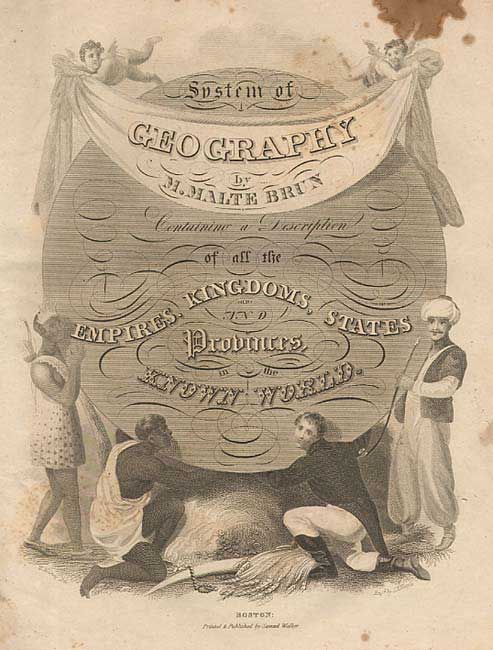 System of
GEOGRAPHY
by
M. MALTE BRUN
Containing a Description
of all the
EMPIRES, KINGDOMS, STATES
AND
Provinces,
in the
KNOWN WORLD.
BOSTON:
Printed & Published by Samuel Walker